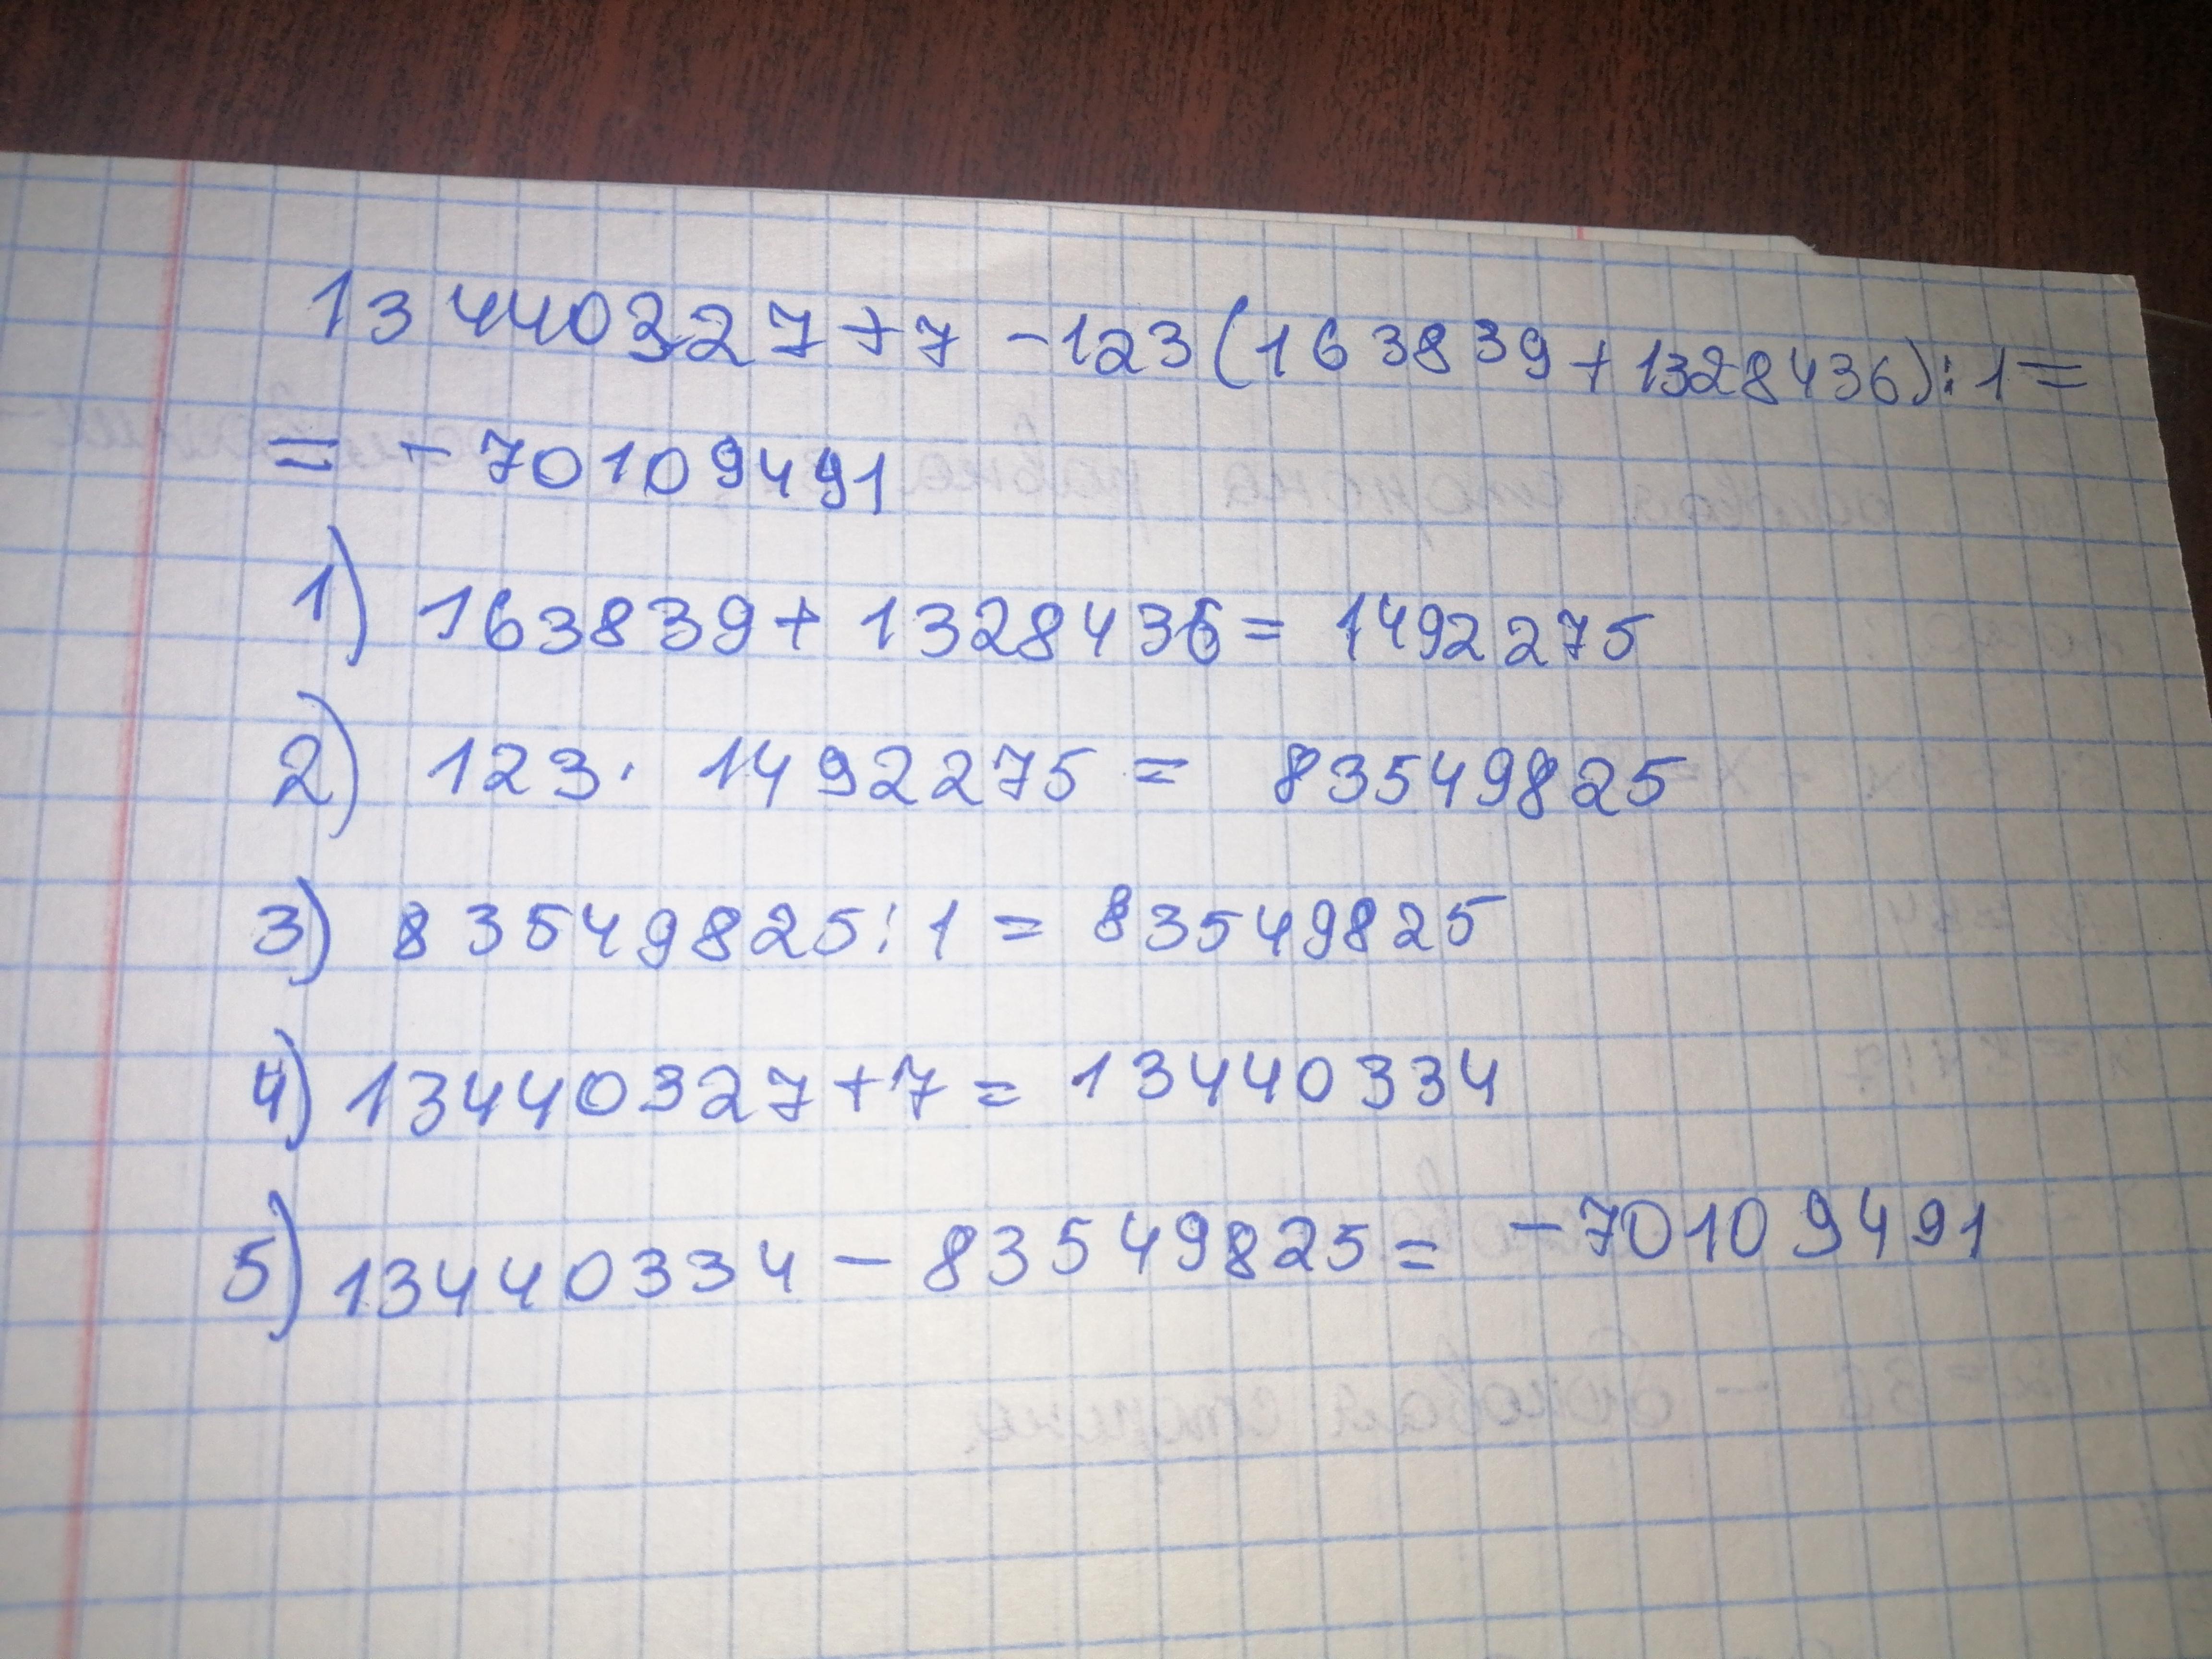 13440327+7-123(163839+1328436):1=
=-70109491
1) 163839+1328436=1492275
2) 123·1492275=83549825
3) 83549825:1=83549825
4) 13440327+7=13440334
5) 13440334-83549825=-70109491